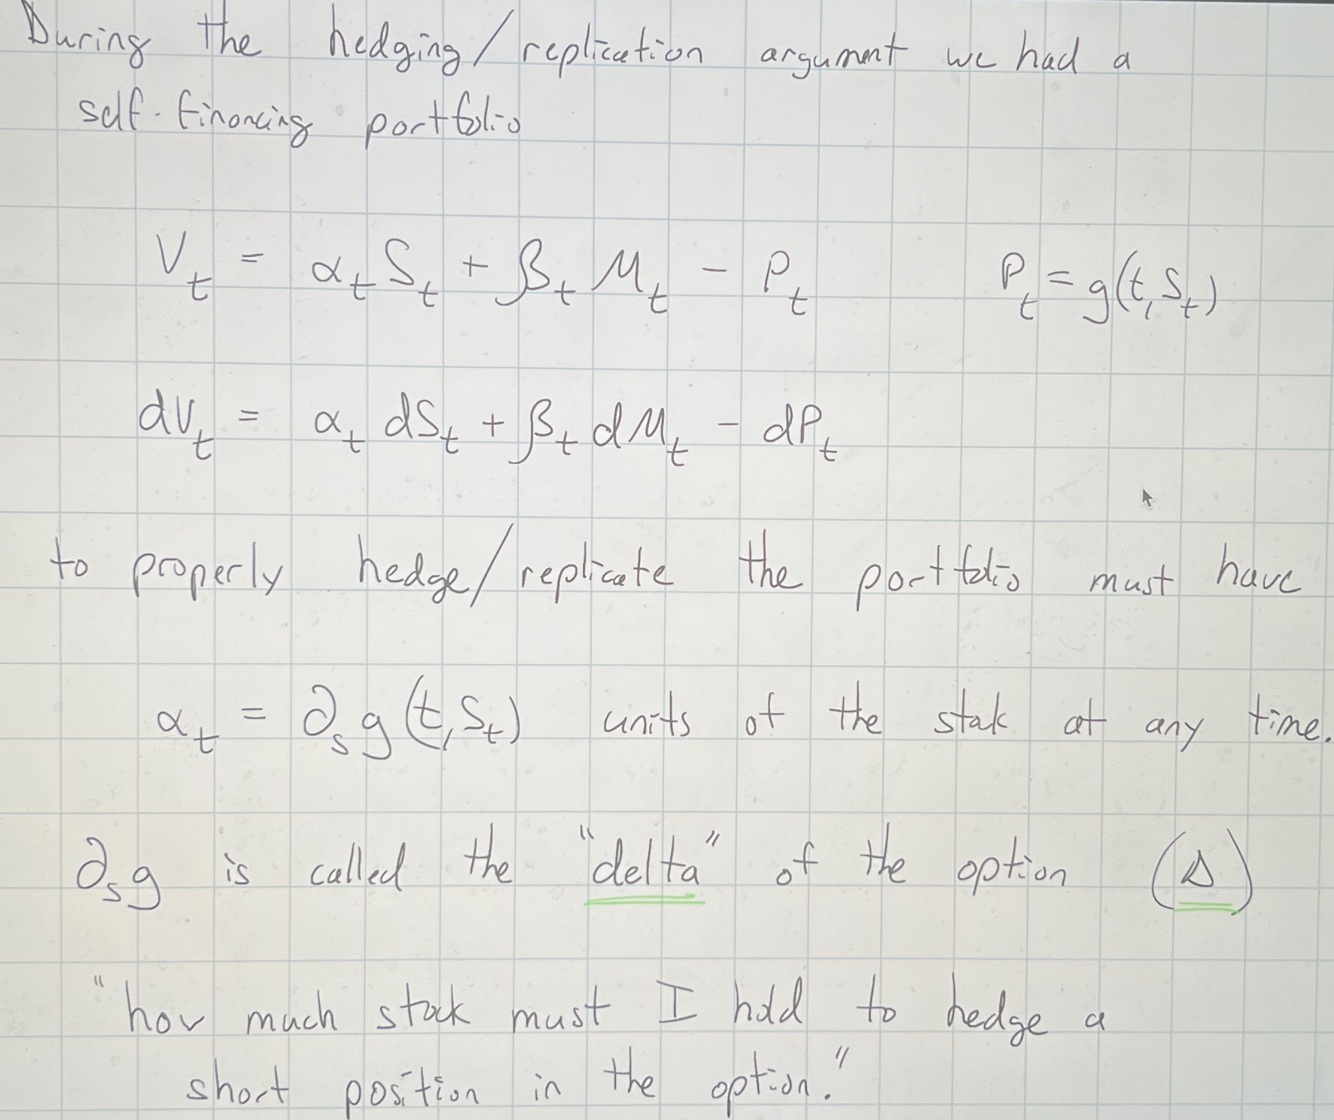 During the hedging/replication argument we had a
self-financing portfolio
V_t = α_t S_t + β_t M_t - P_t P_t = g(t, S_t)
dV_t = α_t dS_t + β_t dM_t - dP_t
to properly hedge/replicate the portfolio must have
α_t = ∂_s g(t, S_t) units of the stock at any time.
∂_s g is called the "delta" of the option (Δ)
"how much stock must I hold to hedge a
short position in the option."